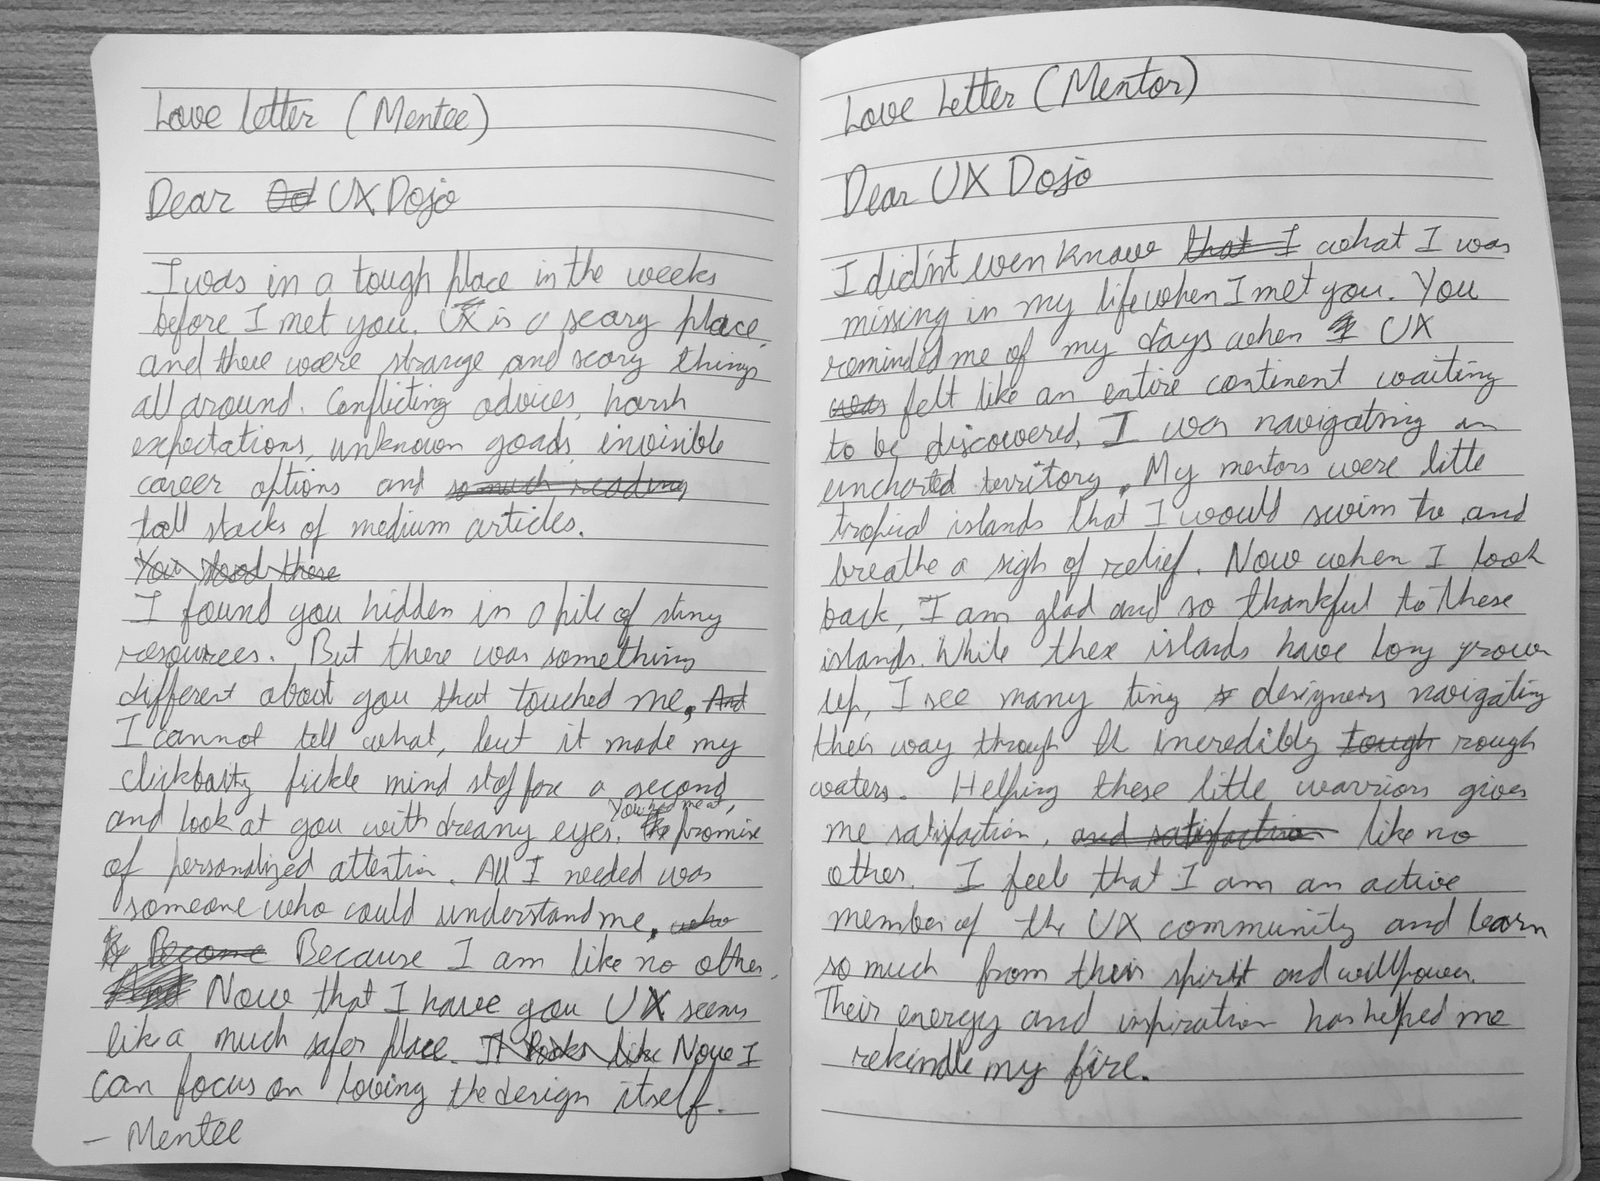 Love Letter (Mentee)
Dear UX Dojo
I was in a tough place in the weeks
before I met you. UX is a scary place,
and there were strange and scary things
all around. Conflicting advices, harsh
expectations, unknown goads, invisible
career options and so much reading
tall stacks of medium articles.
You stood there
I found you hidden in a pile of stiny
resources. But there was something
different about you that touched me. And
I cannot tell what, but it made my
clickbaity fickle mind stop for a second,
You had me at
and look at you with dreamy eyes. The promise
of personalized attention. All I needed was
someone who could understand me, who
Become Because I am like no other.
And Now that I have you UX seems
like a much safer place. It looks like Now I
can focus on loving the design itself.
– Mentee
Love Letter (Mentor)
Dear UX Dojo
I didn't even know that I what I was
missing in my life when I met you. You
reminded me of my days when UX
was felt like an entire continent waiting
to be discovered, I was navigating an
uncharted territory. My mentors were little
tropical islands that I would swim to and
breathe a sigh of relief. Now when I look
back, I am glad and so thankful to these
islands. While these islands have long grown
up, I see many tiny designers navigating
their way through th incredibly tough rough
waters. Helping these little warriors gives
me satisfaction, and satisfaction like no
other. I feel that I am an active
member of the UX community and learn
so much from their spirit and willpower.
Their energy and inspiration has helped me
rekindle my fire.